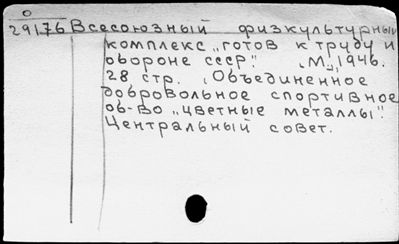 О
29176 Всесоюзный физкультурный
комплекс „готов к труду и
обороне СССР". М., 1946.
28 стр. (Объединенное
добровольное спортивное
об-во „цветные металлы".
Центральный совет.